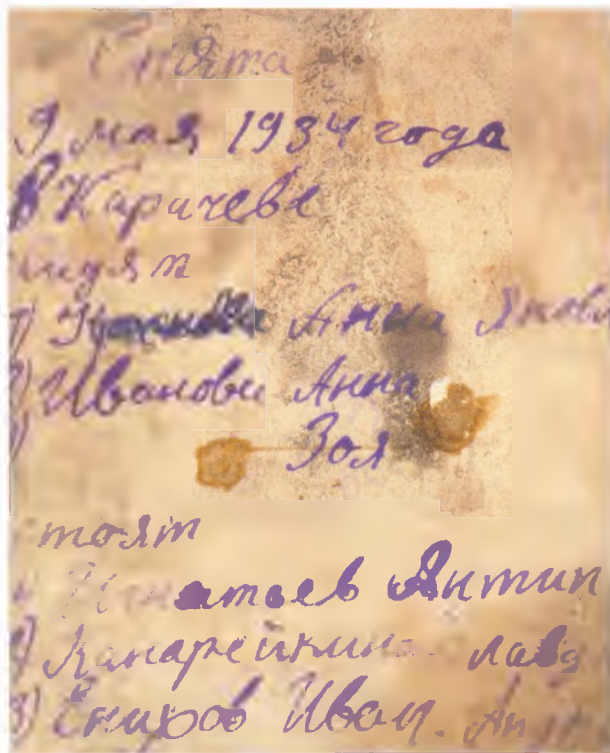 Снята
9 мая 1934 года
в Карачеве
сидят
1) Анна Яковл
2) Ивановна Анна
3) Зоя
стоят
1) Игнатьев Антип
2) Канарейкина Клавд
3) Снихов Иван. Ан